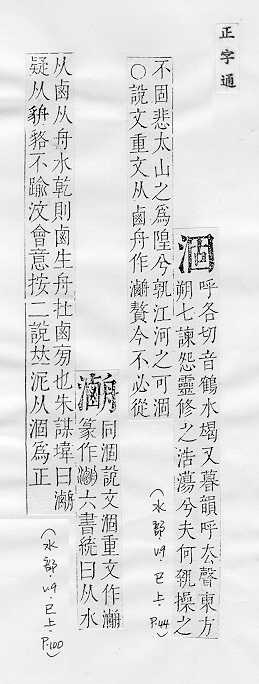 正字通
涸
呼各切音鶴水竭又暮韻呼厺聲東方
朔七諫怨靈修之浩蕩兮夫何執操之
不固悲太山之爲隍兮孰江河之可涸
○說文重文从鹵舟作𤅀贅今不必從
(水部.v9.巳上.P.44)
𤅀
同涸說文涸重文作𤅀
篆作六書統曰从水
从鹵从舟水乾則鹵生舟扗鹵㫄也朱謀㙔曰𤅀
疑从貈貉不踰汶會意按二說𠀤泥从涸爲正
(水部.v9.巳上.P.100)